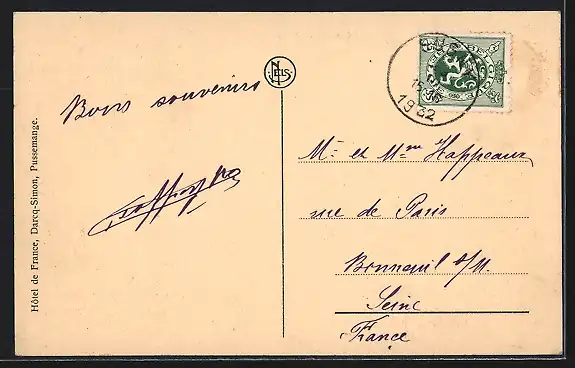 Bons souvenirs
Hôtel de France, Darcq-Simon, Pussemange.
NELS
1932
Mr et Mme Kappeaux
rue de Paris
Bonneuil s/M.
Seine
France